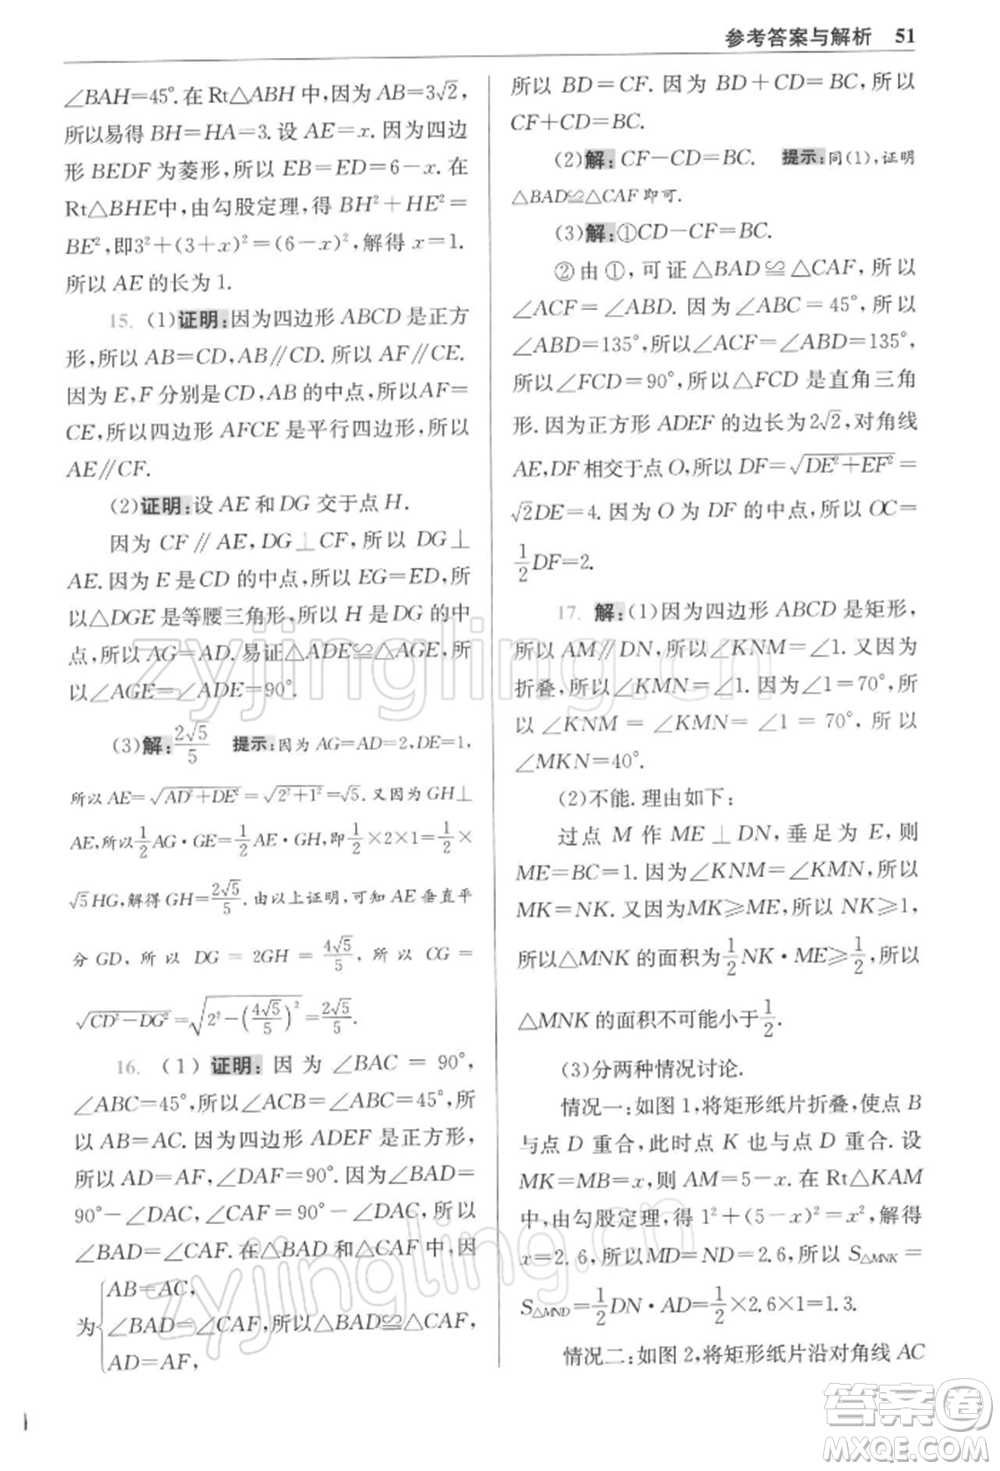 参考答案与解析 51
∠BAH=45°. 在 Rt△ABH 中,因为 AB=3√2,
所以易得 BH=HA=3. 设 AE=x. 因为四边
形 BEDF 为菱形,所以 EB=ED=6-x. 在
Rt△BHE中,由勾股定理,得 BH²+HE²=
BE²,即3²+(3+x)²=(6-x)²,解得 x=1.
所以 AE 的长为 1.
15. (1)证明:因为四边形 ABCD 是正方
形,所以 AB=CD,AB∥CD. 所以 AF∥CE.
因为 E,F 分别是 CD,AB 的中点,所以 AF=
CE,所以四边形 AFCE 是平行四边形,所以
AE∥CF.
(2)证明:设 AE 和 DG 交于点 H.
因为 CF∥AE,DG⊥CF,所以 DG⊥
AE. 因为 E 是 CD 的中点,所以 EG=ED,所
以△DGE 是等腰三角形,所以 H 是 DG 的中
点,所以 AG=AD. 易证△ADE≌△AGE,所
以∠AGE=∠ADE=90°.
(3)解:2√5/5 提示:因为 AG=AD=2,DE=1,
所以 AE=√(AD²+DE²)=√(2²+1²)=√5. 又因为 GH⊥
AE,所以1/2AG·GE=1/2AE·GH,即1/2×2×1=1/2×
√5HG,解得 GH=2√5/5. 由以上证明,可知 AE 垂直平
分 GD,所以 DG=2GH=4√5/5,所以 CG=
√(CD²-DG²)=√(2²-(4√5/5)²)=2√5/5.
16. (1)证明:因为∠BAC=90°,
∠ABC=45°,所以∠ACB=∠ABC=45°,所
以 AB=AC. 因为四边形 ADEF 是正方形,
所以 AD=AF,∠DAF=90°. 因为∠BAD=
90°-∠DAC,∠CAF=90°-∠DAC,所以
∠BAD=∠CAF. 在△BAD 和△CAF 中,因
为{AB=AC,
∠BAD=∠CAF,所以△BAD≌△CAF,
AD=AF,
所以 BD=CF. 因为 BD+CD=BC,所以
CF+CD=BC.
(2)解:CF-CD=BC. 提示:同(1),证明
△BAD≌△CAF 即可.
(3)解:①CD-CF=BC.
②由①,可证△BAD≌△CAF,所以
∠ACF=∠ABD. 因为∠ABC=45°,所以
∠ABD=135°,所以∠ACF=∠ABD=135°,
所以∠FCD=90°,所以△FCD 是直角三角
形. 因为正方形 ADEF 的边长为2√2,对角线
AE,DF 相交于点 O,所以 DF=√(DE²+EF²)=
√2DE=4. 因为 O 为 DF 的中点,所以 OC=
1/2DF=2.
17. 解:(1)因为四边形 ABCD 是矩形,
所以 AM∥DN,所以∠KNM=∠1. 因为
折叠,所以∠KMN=∠1. 因为∠1=70°,所
以∠KNM=∠KMN=∠1=70°,所以
∠MKN=40°.
(2)不能. 理由如下:
过点 M 作 ME⊥DN,垂足为 E,则
ME=BC=1. 因为∠KNM=∠KMN,所以
MK=NK. 又因为MK≥ME,所以 NK≥1,
所以△MNK 的面积=1/2NK·ME≥1/2,所以
△MNK 的面积不可能小于1/2.
(3)分两种情况讨论.
情况一:如图 1,将矩形纸片折叠,使点 B
与点 D 重合,此时点 K 也与点 D 重合. 设
MK=MB=x,则 AM=5-x. 在 Rt△KAM
中,由勾股定理,得 1²+(5-x)²=x²,解得
x=2.6,所以MD=ND=2.6,所以 S△MNK=
S△MND=1/2DN·AD=1/2×2.6×1=1.3.
情况二:如图 2,将矩形纸片沿对角线 AC
zyjingling.cn
zyjingling.cn
答案圈
MXQE.COM